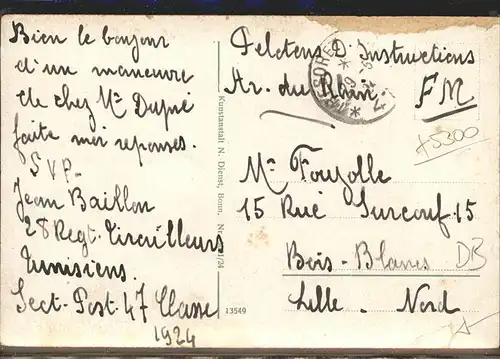 Bien le bonjour
d'un maneuvre
de chez Mr Dupré
faite moi reponses.
SVP-
Jean Baillon
28 Regt. Tirailleurs
tunisiens.
Sect-Post-47 Classe
1924
Kunstanstalt N. Dienst, Bonn. Nr.
1/24
13549
Pelotons D. Instructions
Ar. du Rhin
FM
+5300
Mr Fouzolle
15 Rue Surcouf. 15
Bois-Blancs
DB
Lille. Nord